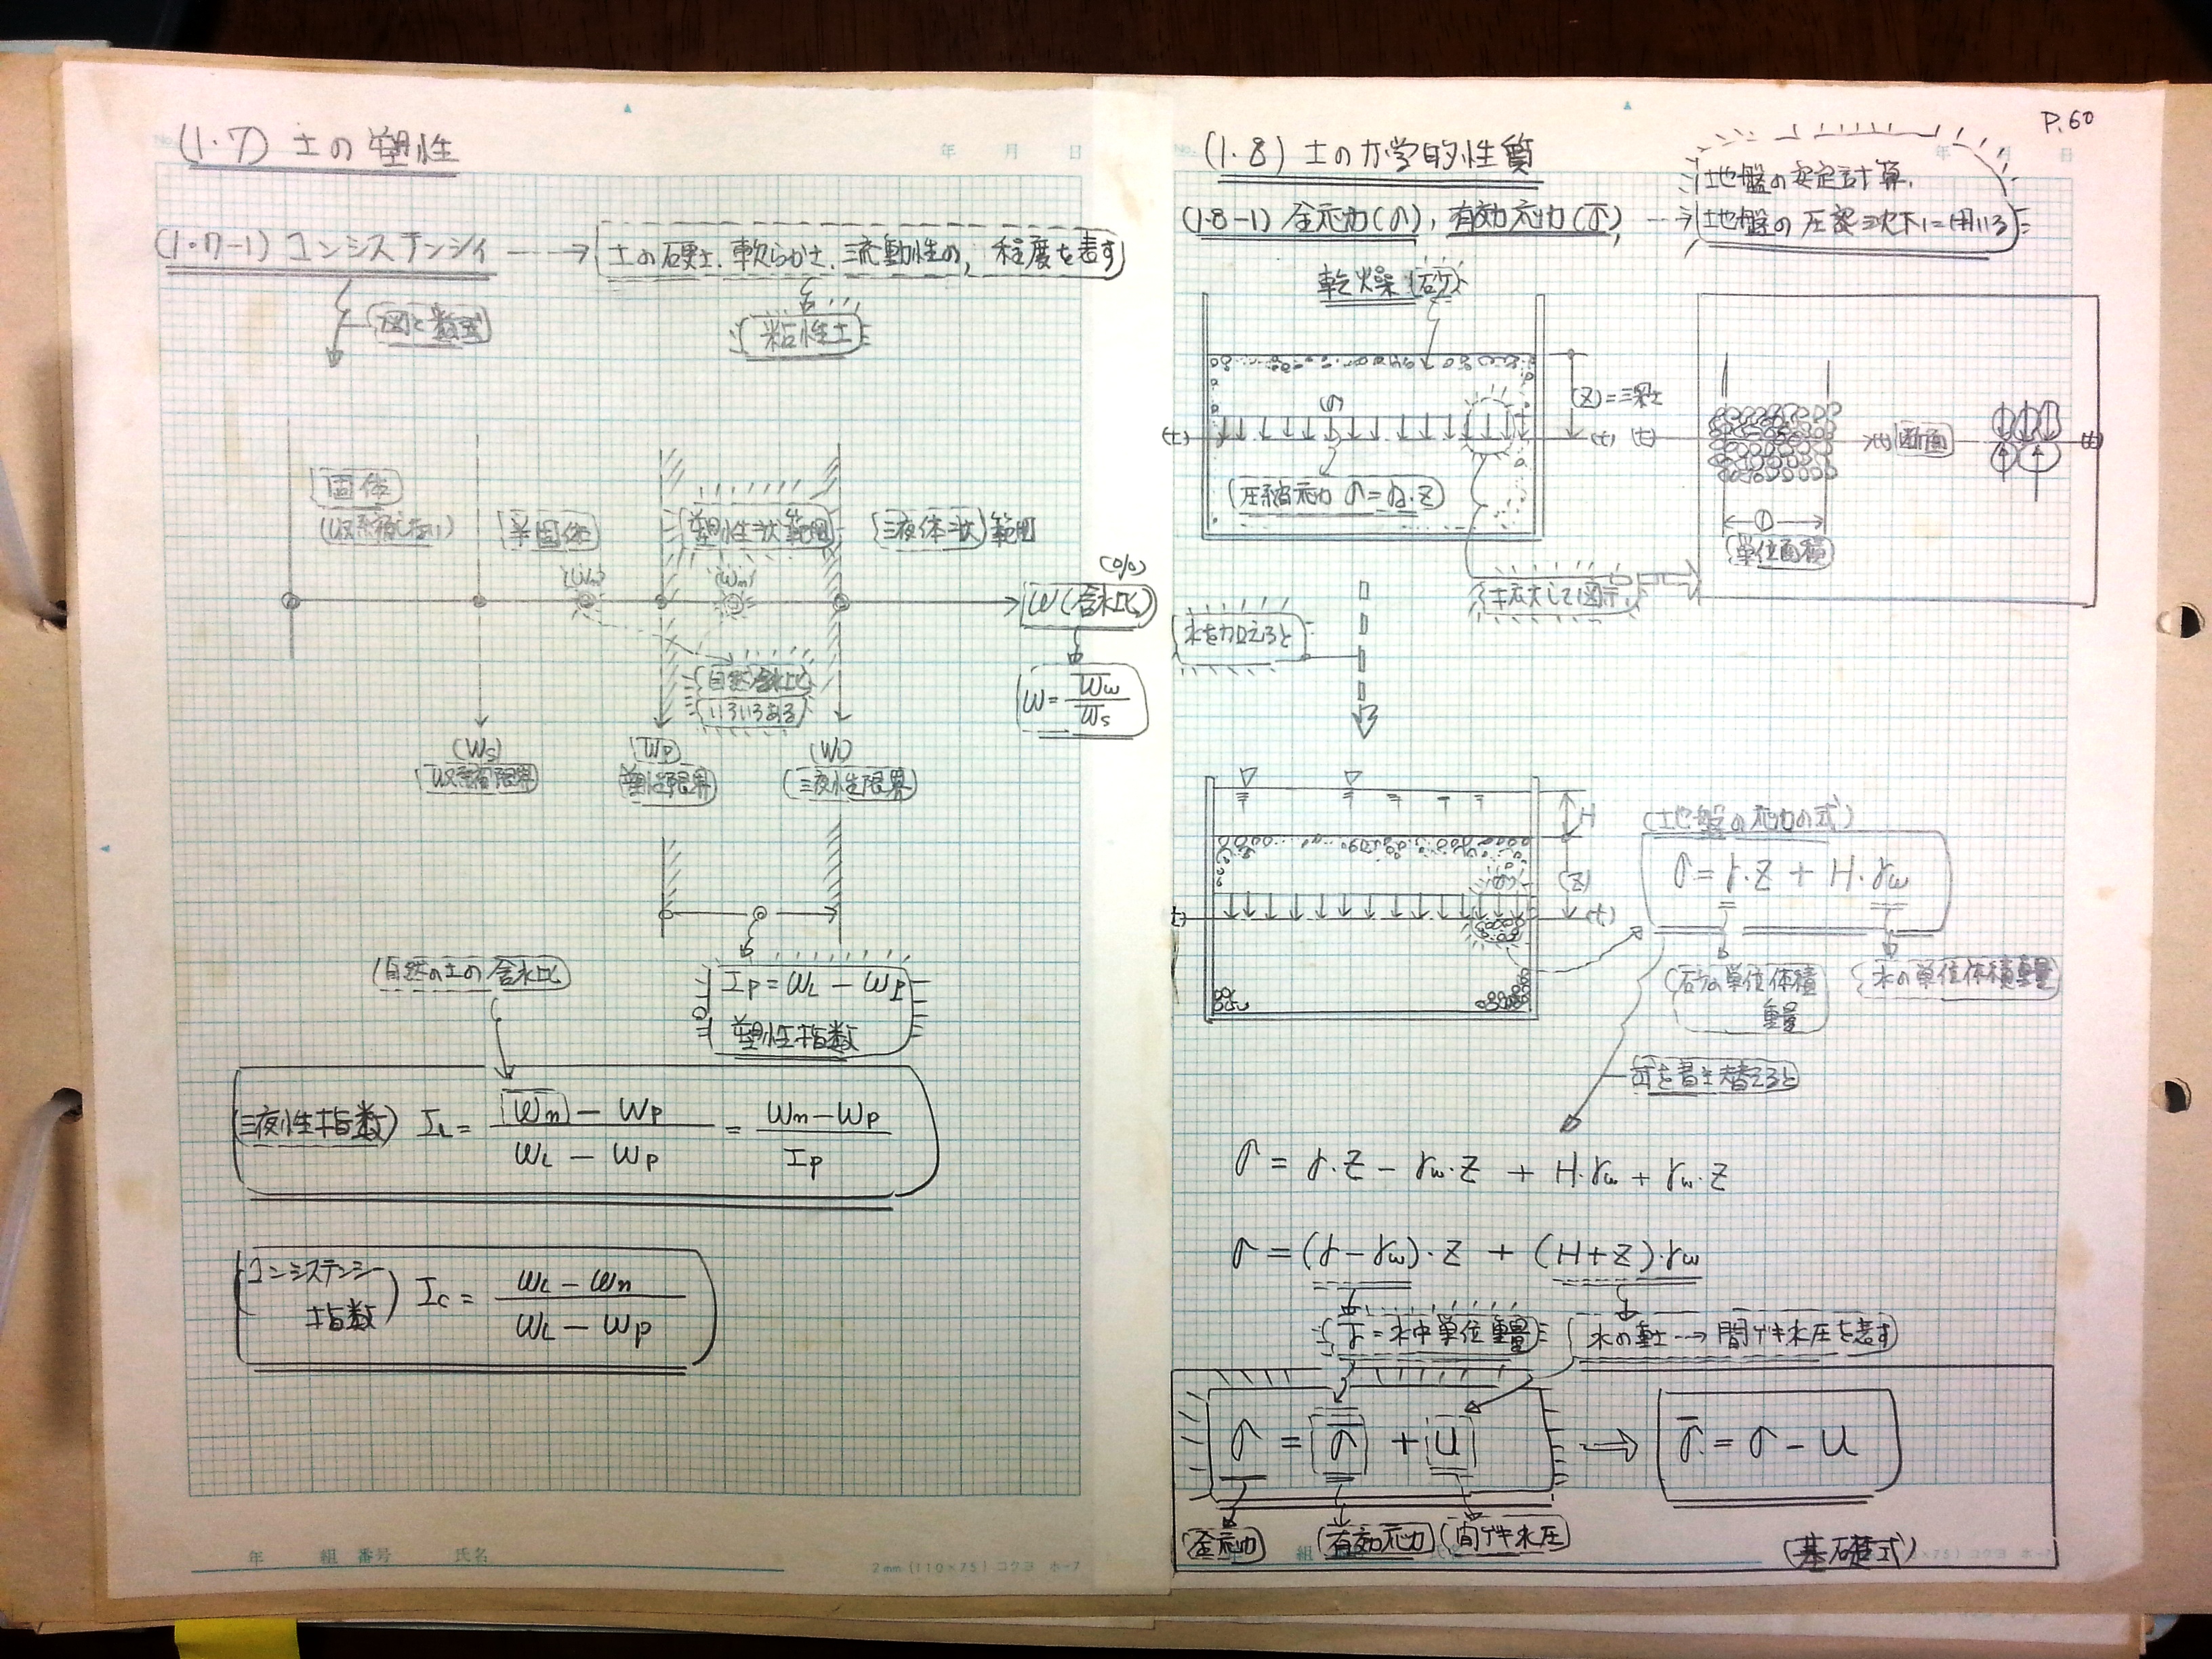 (1.7) 土の塑性
(1.7-1) コンシステンシィ
土の硬さ、軟らかさ、流動性の、程度を表す
図と数式
粘性土
固体
(収縮しない)
半固体
塑性状範囲
(液体状)範囲
(Wn)
(Wn)
(%)
W(含水比)
自然含水比
いろいろある
W = Ww / Ws
(Ws)
収縮限界
Wp
塑性限界
(WL)
液性限界
自然の土の含水比
Ip = WL - Wp
塑性指数
(液性指数) IL = (Wn - Wp) / (WL - Wp) = (Wn - Wp) / Ip
(コンシステンシー指数) Ic = (WL - Wn) / (WL - Wp)
年 月 日
年 組 番号 氏名
2mm (110×75) コクヨ ホ-7
P.60
(1.8) 土の力学的性質
地盤の安定計算、
(1.8-1) 全応力(σ), 有効応力(σ̄),
地盤の圧密沈下に用いる
乾燥(砂)
σ
(Z)=深さ
(t)
(t)
(t)
(t)
断面
(t)
圧縮応力 σ = γd・Z
①
単位面積
拡大して図示
水を加えると
H
(Z)
(t)
(t)
(地盤の応力の式)
σ = γ・Z + H・γw
砂の単位体積重量
水の単位体積重量
式を書き替えると
σ = γ・Z - γw・Z + H・γw + γw・Z
σ = (γ - γw)・Z + (H+Z)・γw
γ̄ = 水中単位重量
水の重さ → 間ゲキ水圧を表す
σ = σ̄ + U
σ̄ = σ - U
全応力
有効応力
間ゲキ水圧
(基礎式)